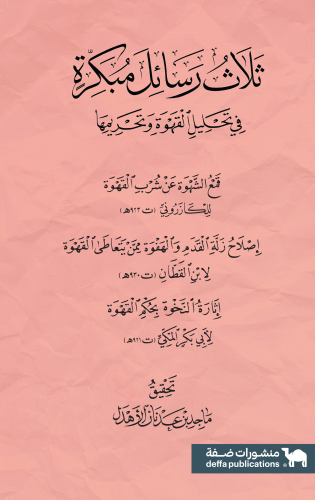 ثَلَاثُ رَسَائِلَ مُبَكِّرَةٍ
فِي تَحْلِيلِ الْقَهْوَةِ وَتَحْرِيمِهَا
قَمْعُ الشَّهْوَةِ عَنْ شُرْبِ الْقَهْوَةِ
لِلْكَازَرُونِيِّ (ت ٩٢٣هـ)
إِصْلَاحُ زَلَّةِ الْقَدَمِ وَالْهَفْوَةِ مِمَّنْ يَتَعَاطَى الْقَهْوَةَ
لِابْنِ الْقَطَّانِ (ت ٩٣٠هـ)
إِثَارَةُ النَّخْوَةِ بِحُكْمِ الْقَهْوَةِ
لِأَبِي بَكْرٍ الْمَكِّيِّ (ت ٩٢١هـ)
تَحْقِيقُ
مَاجِد بْن عَدْنَان الْأَهْدَل
منشورات ضفة
deffa publications